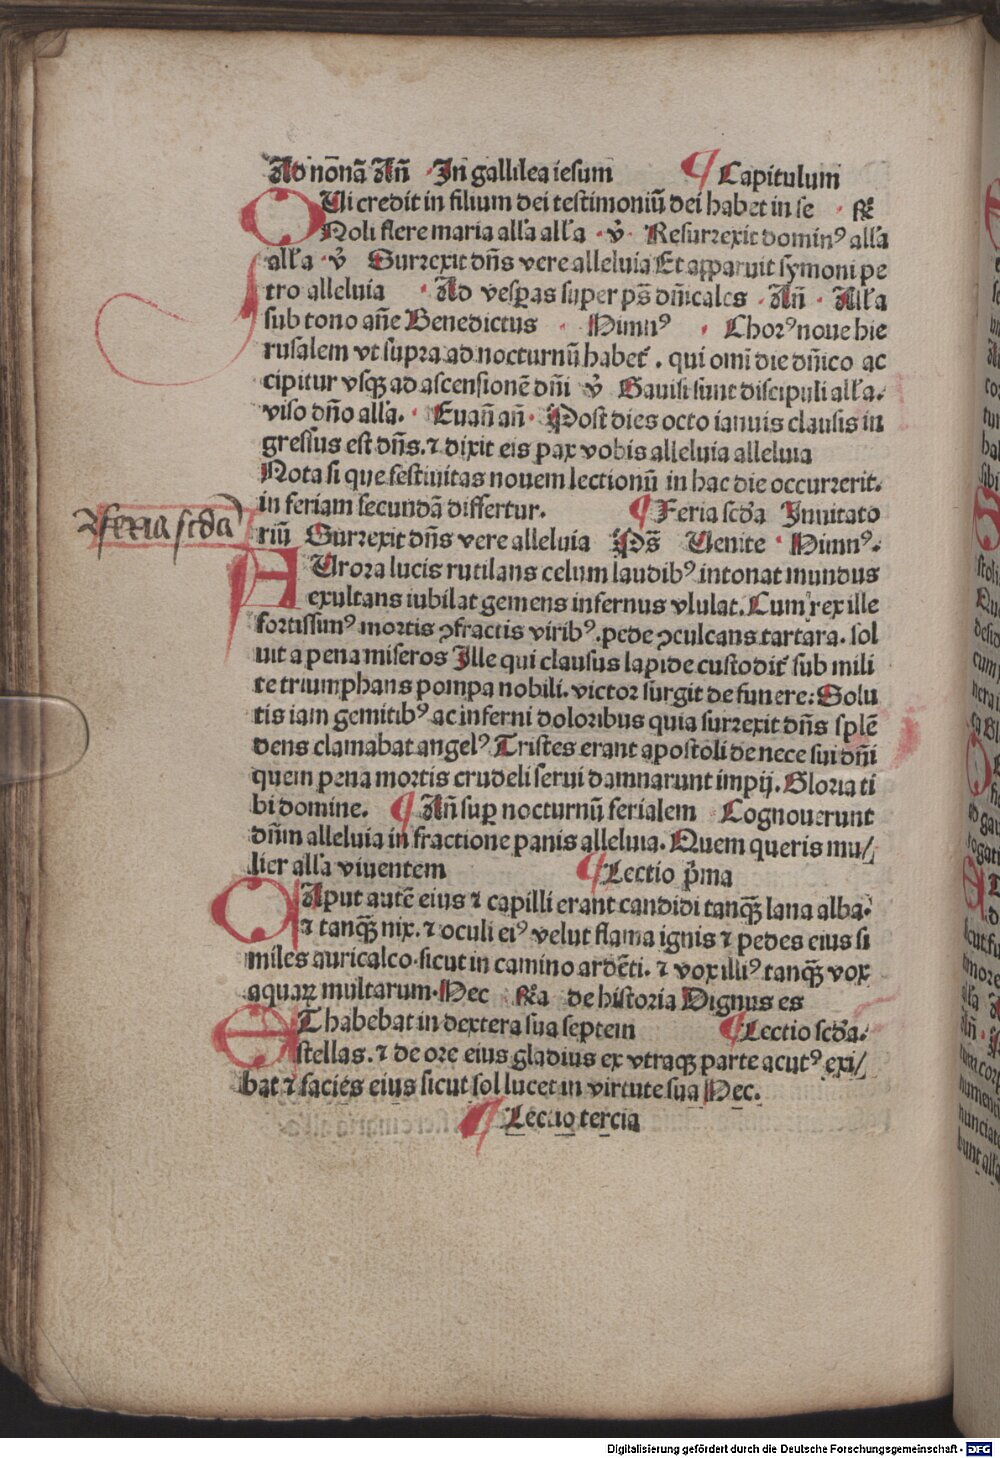 Ad nonā Añ · In gallilea iesum ¶ Capitulum
QUi credit in filium dei testimoniū dei habet in se · ℟
Noli flere maria alľa alľa · ℣ · Resurrexit dominꝰ alľa
alľa · ℣ Surrexit dñs vere alleluia Et apparuit symoni pe
tro alleluia · Ad vesꝑas super ps̄ dñicales · Añ · Alľa
sub tono añe Benedictus · Nimnꝰ · Chorꝰ noue hie
rusalem vt supra ad nocturnū habet᷑ . qui omī die dñico ac
cipitur vsqꝫ ad ascensionē dñi ℣ Gauisi sunt discipuli alľa.
viso dño alľa. · Euañ añ · Post dies octo ianuis clausis in
gressus est dñs. ⁊ dixit eis pax vobis alleluia alleluia
Nota si que festiuitas nouem lectionū in hac die occurrerit.
in feriam secundā differtur. ¶ Feria scďa Inuitato
feria scďa
riū Surrexit dñs vere alleluia Ps̄ Uenite · Nimnꝰ.
AUrora lucis rutilans celum laudibꝰ intonat mundus
exultans iubilat gemens infernus vlulat. Cum rex ille
fortissimꝰ mortis ꝯfractis viribꝰ. pede ꝯculcans tartara. sol
uit a pena miseros Ille qui clausus lapide custodit᷑ sub mili
te triumphans pompa nobili. victor surgit de funere: Solu
tis iam gemitibꝰ ac inferni doloribus quia surrexit dñs splē
dens clamabat angelꝰ Tristes erant apostoli de nece sui dñi
quem pena mortis crudeli serui damnarunt impij. Gloria ti
bi domine. ¶ Añ suꝑ nocturnū ferialem Cognouerunt
dñm alleluia in fractione panis alleluia. Quem queris mu/
lier alľa viuentem ¶ Lectio p̄ma
CAput autē eius ⁊ capilli erant candidi tanqꝫ̄ lana alba.
⁊ tanqꝫ̄ nix. ⁊ oculi eiꝰ velut flama ignis ⁊ pedes eius si
miles auricalco. sicut in camino ardēti. ⁊ vox illiꝰ tanqꝫ̄ vox
aquaꝝ multarum. Nec ℟a de historia Dignus es
ET habebat in dextera sua septem ¶ Lectio scďa.
stellas. ⁊ de ore eius gladius ex vtraqꝫ parte acutꝰ exi/
bat ⁊ facies eius sicut sol lucet in virtute sua Nec.
¶ Lectio tercia
Digitalisierung gefördert durch die Deutsche Forschungsgemeinschaft - DFG